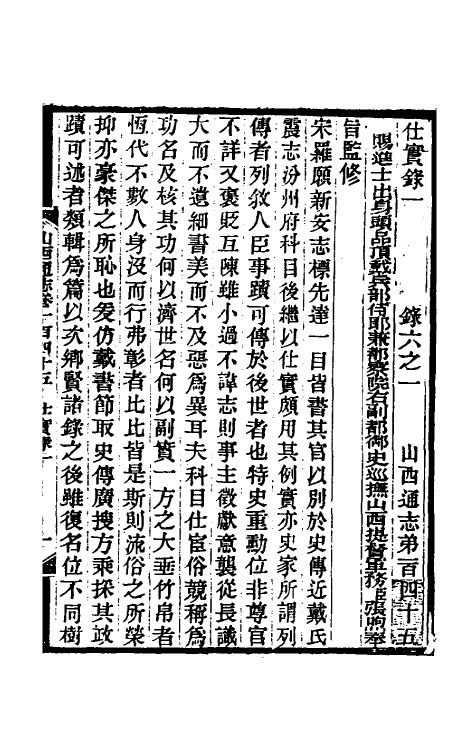 仕實錄一　錄六之一　山西通志第一百四十五
賜進士出身頭品頂戴兵部侍郎兼都察院右副都御史巡撫山西提督軍務臣張煦奉
旨監修
宋羅願新安志標先達一目皆書其官以別於史傳近戴氏
震志汾州府科目後繼以仕實頗用其例實亦史家所謂列
傳者列敘人臣事蹟可傳於後世者也特史重勳位非尊官
不詳又褒貶互陳雖小過不諱志則事主徵獻意襲從長識
大而不遺細書美而不及惡爲異耳夫科目仕宦俗競稱爲
功名及核其功何以濟世名何以副實一方之大垂竹帛者
恆代不數人身沒而行弗彰者比比皆是斯則流俗之所榮
抑亦豪傑之所恥也爰仿戴書節取史傳廣搜方乘採其政
蹟可述者類輯爲篇以次鄉賢諸錄之後雖復名位不同樹
山西通志卷一百四十五　仕實錄一　一